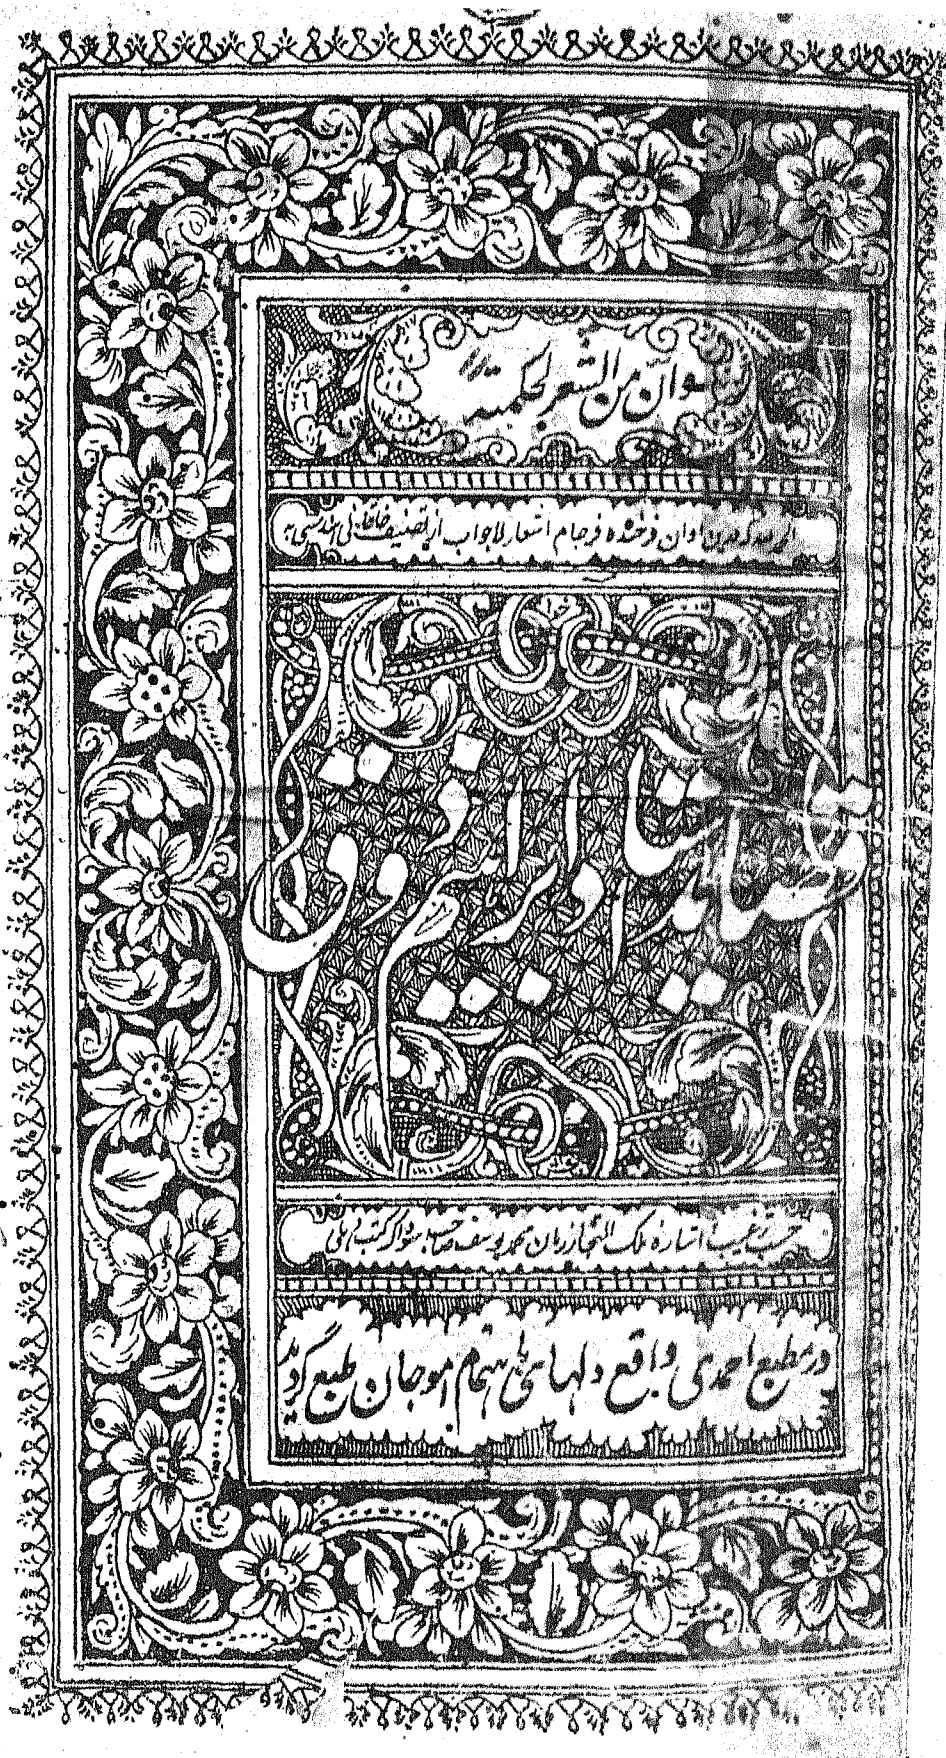 وان من الشعر لحکمتہ
الحمد للہ کہ درین اوان فرخندہ فرجام اشعار لاجواب از تصنیف خاقانی ہند مسمی بہ
قصاید اردو ابراہیم ذوق
حسب ترغیب اشارہ ملک التجار زمان محمد یوسف صاحب سوداگر کتب دہلی
در مطبع احمدی واقع دلہائی باہتمام اموجان طبع گردید